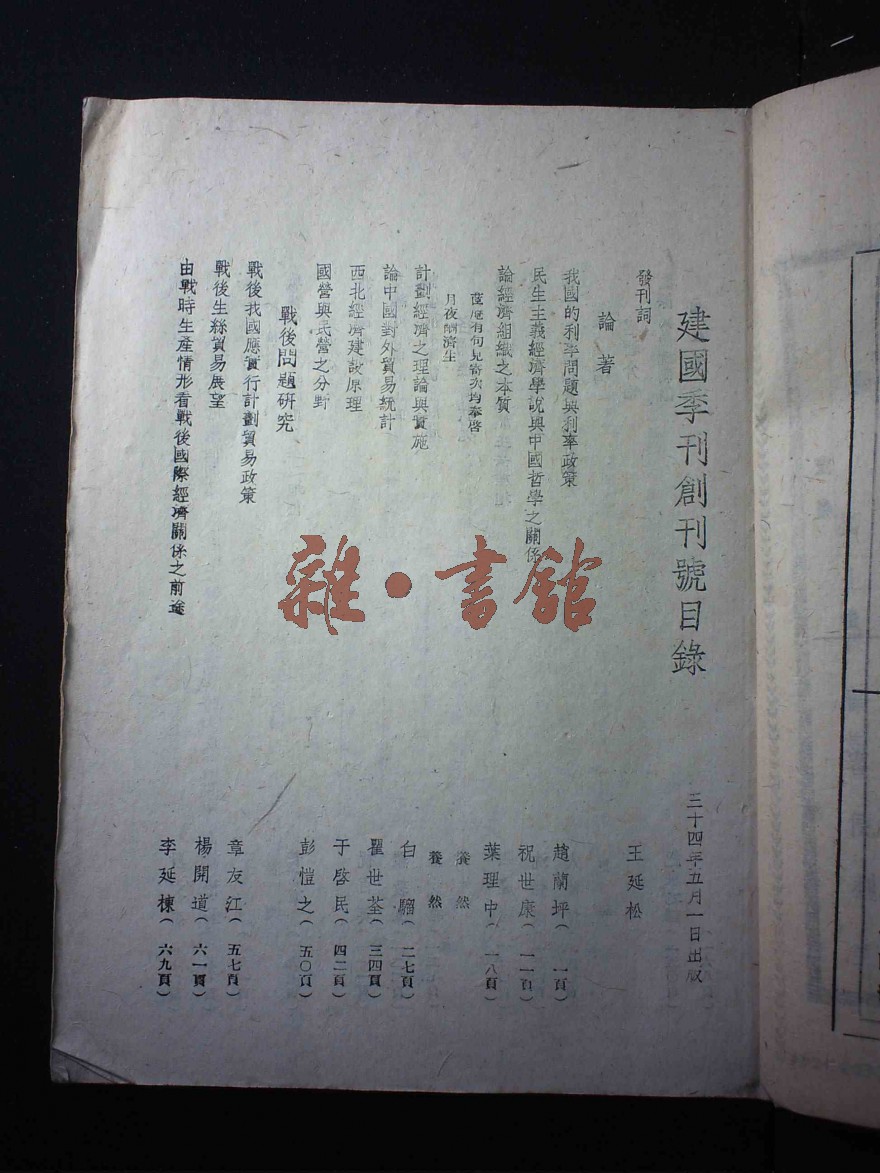 建國季刊創刊號目錄
三十四年五月一日出版
發刊詞
王延松
論著
我國的利率問題與利率政策
趙蘭坪(一頁)
民生主義經濟學說與中國哲學之關係
祝世康(一一頁)
論經濟組織之本質
葉理中(一八頁)
庵有句見寄次均奉答
養然
月夜酬濟生
養然
計劃經濟之理論與實施
白騮(二七頁)
論中國對外貿易統計
瞿世荃(三四頁)
西北經濟建設原理
于啓民(四二頁)
國營與民營之分野
彭愷之(五〇頁)
戰後問題研究
戰後我國應實行計劃貿易政策
章友江(五七頁)
戰後生絲貿易展望
楊開道(六一頁)
由戰時生產情形看戰後國際經濟關係之前途
李延棟(六九頁)
雜·書館